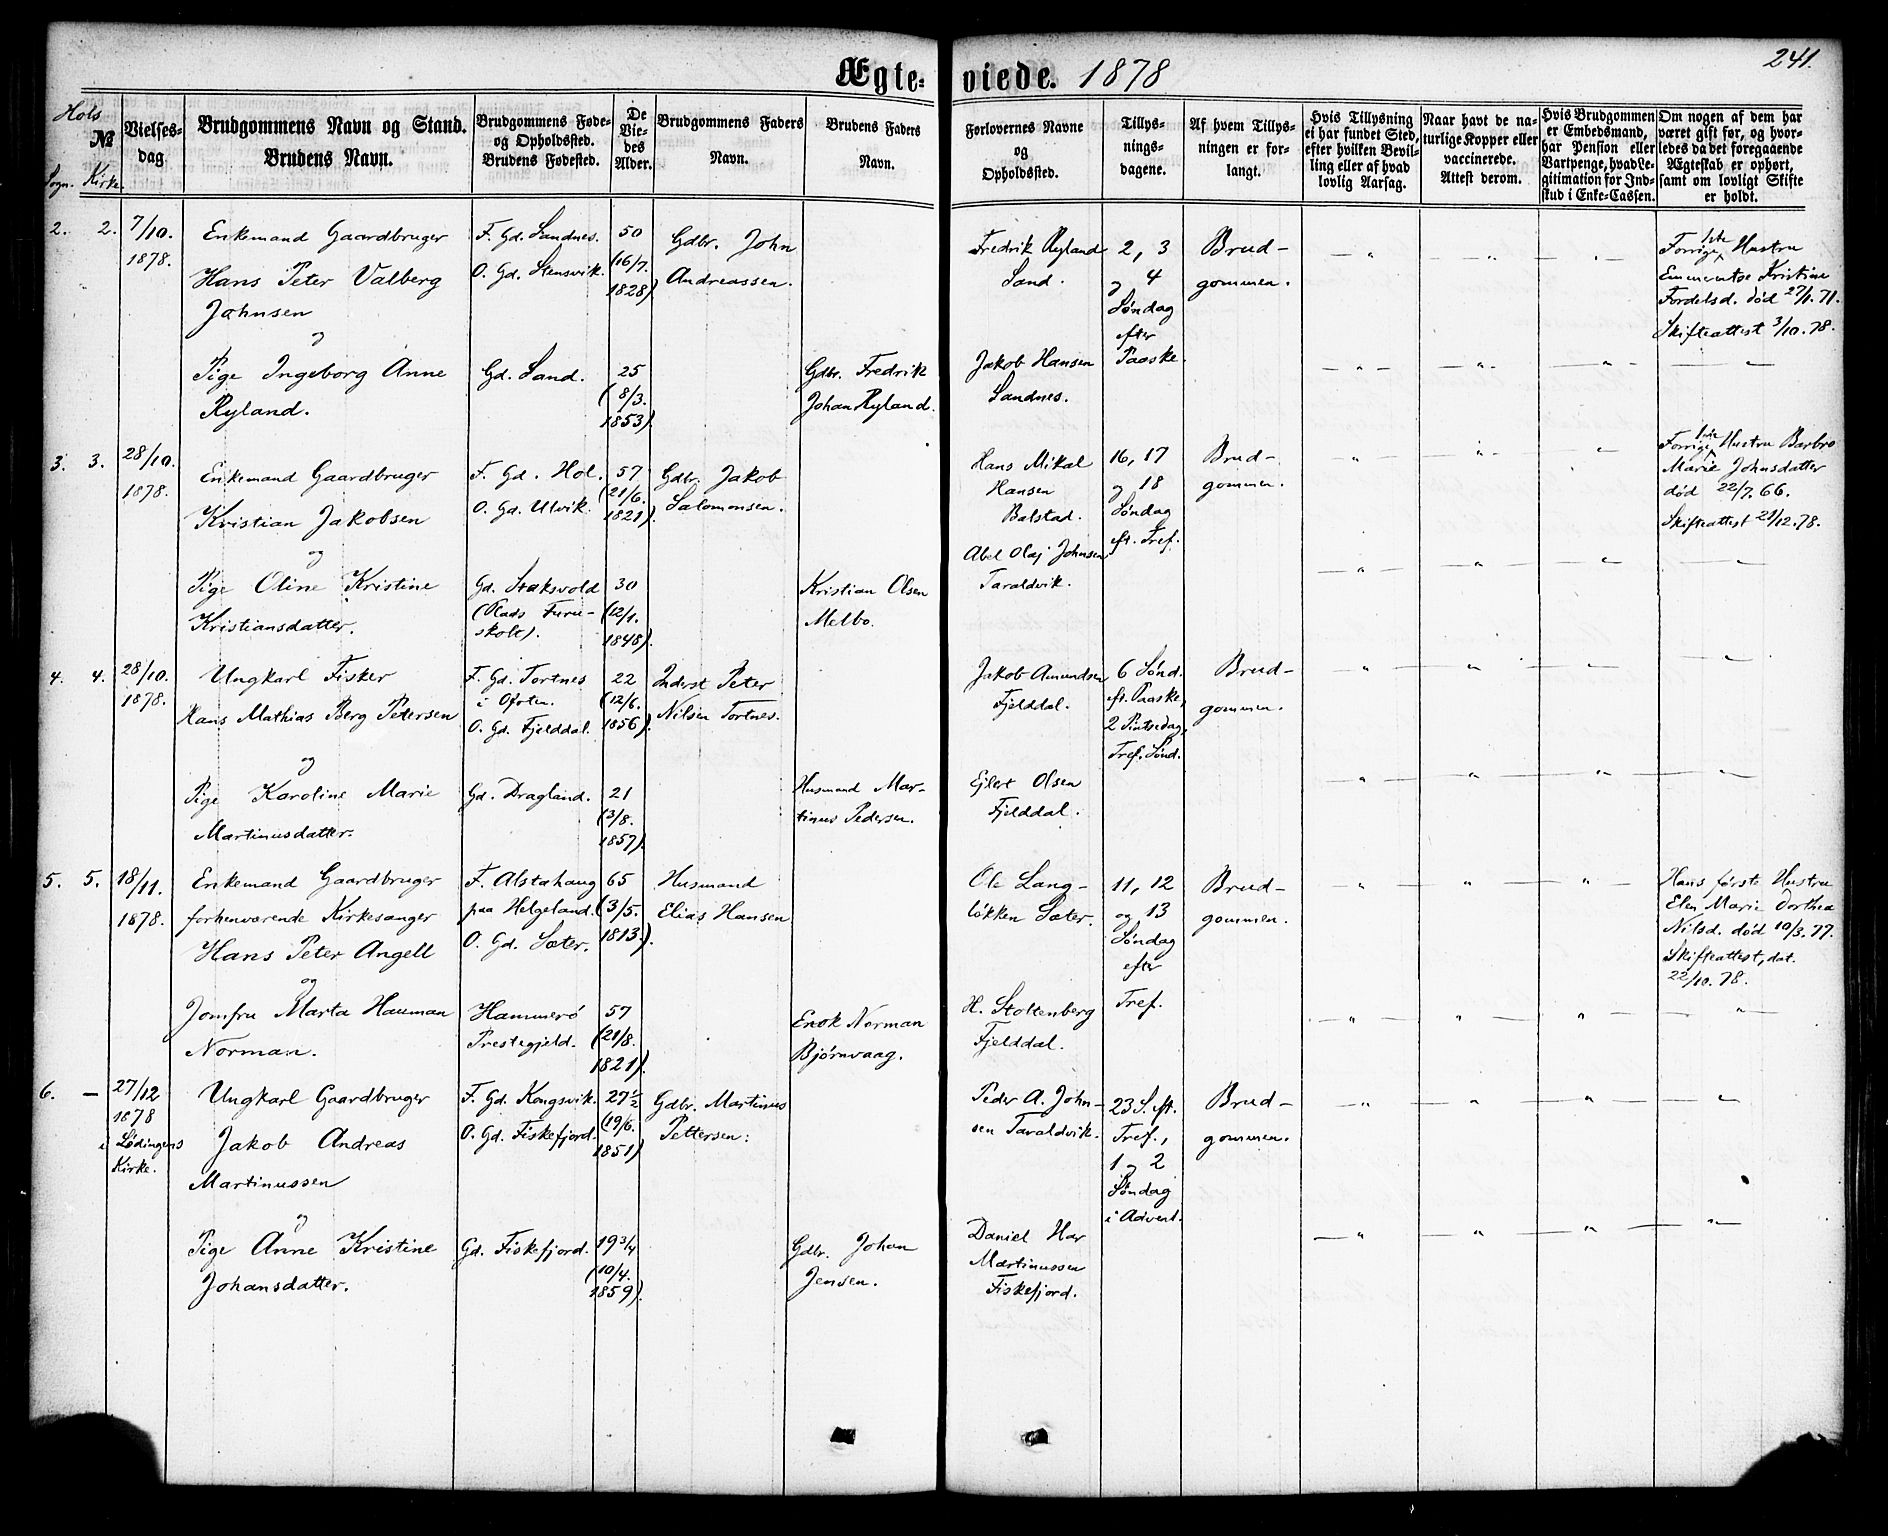 241.
Ægteviede. 1878
Hols
Sogn. Kirke.
№
Vielsesdag.
Brudgommens Navn og Stand.
Brudens Navn.
Brudgommens Føde-
og Opholdssted.
Brudens Fødested.
De
Vie-
des
Alder.
Brudgommens Faders
Navn.
Brudens Faders
Navn.
Forlovernes Navne
og
Opholdssted.
Tillys-
nings-
dagene.
Af hvem Tillys-
ningen er for-
langt.
Hvis Tillysning
ei har fundet Sted,
efter hvilken Bevil-
ling eller af hvad
lovlig Aarsag.
Naar havt de na-
turlige Kopper eller
vaccinerede.
Attest derom.
Hvis Brudgommen
er Embedsmand,
har Pension eller
Vartpenge, hvad Le-
gitimation for Ind-
skud i Enke-Cassen.
Om nogen af dem har
været gift før, og hvor-
ledes da det foregaaende
Ægteskab er ophørt,
samt om lovligt Skifte
er holdt.
2. 2.
7/10.
1878.
Enkemand Gaardbruger
Hans Peter Valberg
Johnsen
og
Pige Ingeborg Anne
Ryland.
F. Gd. Sandnes.
O. Gd. Stensvik.
Gd. Sand.
50
(16/7.
1828).
25
(8/3.
1853).
Gdbr. John
Andreassen.
Gdbr. Fredrik
Johan Ryland.
Fredrik Ryland
Sand.
Jakob Hansen
Sandnes.
2, 3
og 4
Søndag
efter
Paaske.
Brud-
gommen.
Forrige 1ste Hustru
Emmerentse Kristine
Fordelsd. død 27/1.71.
Skifteattest 3/10.78.
3. 3.
28/10.
1878.
Enkemand Gaardbruger
Kristian Jakobsen
og
Pige Oline Kristine
Kristiansdatter.
F. Gd. Hol.
O. Gd. Ulvik.
Gd. Stoksvold
(Plads Furu-
skolt).
57
(21/6.
1821).
30
(12/1.
1848).
Gdbr. Jakob
Salomonsen.
Kristian Olsen
Melbo.
Hans Mikal
Hansen
Balstad.
Abel Olaj Johnsen
Taraldvik.
16, 17
og 18
Søndag
eft. Tref.
Brud-
gommen.
Forrige 1ste Hustru Barbro
Marie Johnsdatter
død 22/7.66.
Skifteattest 21/12.78.
4. 4.
28/10.
1878.
Ungkarl Fisker
Hans Mathias Berg Petersen
og
Pige Karoline Marie
Martinusdatter.
F. Gd. Tortnes
i Ofoten.
O. Gd. Fjelddal.
Gd. Dragland.
22
(12/6.
1856).
21
(3/8.
1857).
Inderst Peter
Nilsen Tortnes.
Husmand Mar-
tinus Pedersen.
Jakob Amundsen
Fjelddal.
Ejlert Olsen
Fjelddal.
6 Sønd.
eft. Paaske,
2 Pintsedag,
Tref. Sønd.
Brud-
gommen.
5. 5.
18/11.
1878.
Enkemand Gaardbruger
forhenværende Kirkesanger
Hans Peter Angell
og
Jomfru Marta Hauman
Norman.
F. Alstahaug
paa Helgeland.
O. Gd. Sæter.
Hammerø
Prestegjeld.
65
(3/5.
1813).
57
(21/8.
1821).
Husmand
Elias Hansen
Enok Norman
Bjørnvaag.
Ole Lang-
løkken Sæter.
H. Stoltenberg
Fjelddal.
11, 12
og 13
Søndag
efter
Tref.
Brud-
gommen.
Hans første Hustru
Elen Marie Dorthea
Nilsd. død 10/3.77.
Skifteattest, dat.
22/10.78.
6. —
27/12
1878
i Lødingens
Kirke.
Ungkarl Gaardbruger
Jakob Andreas
Martinussen
og
Pige Anne Kristine
Johansdatter.
F. Gd. Kongsvik.
O. Gd. Fiskefjord.
Gd. Fiskefjord.
27 1/2
(19/6.
1851)
19 3/4
(10/4.
1859).
Gdbr. Martinus
Pettersen.
Gdbr. Johan
Jensen.
Peder A. John-
sen Taraldvik.
Daniel Har
Martinussen
Fiskefjord.
23 S. eft.
Tref.,
1 og 2
Søndag
i Advent.
Brud-
gommen.